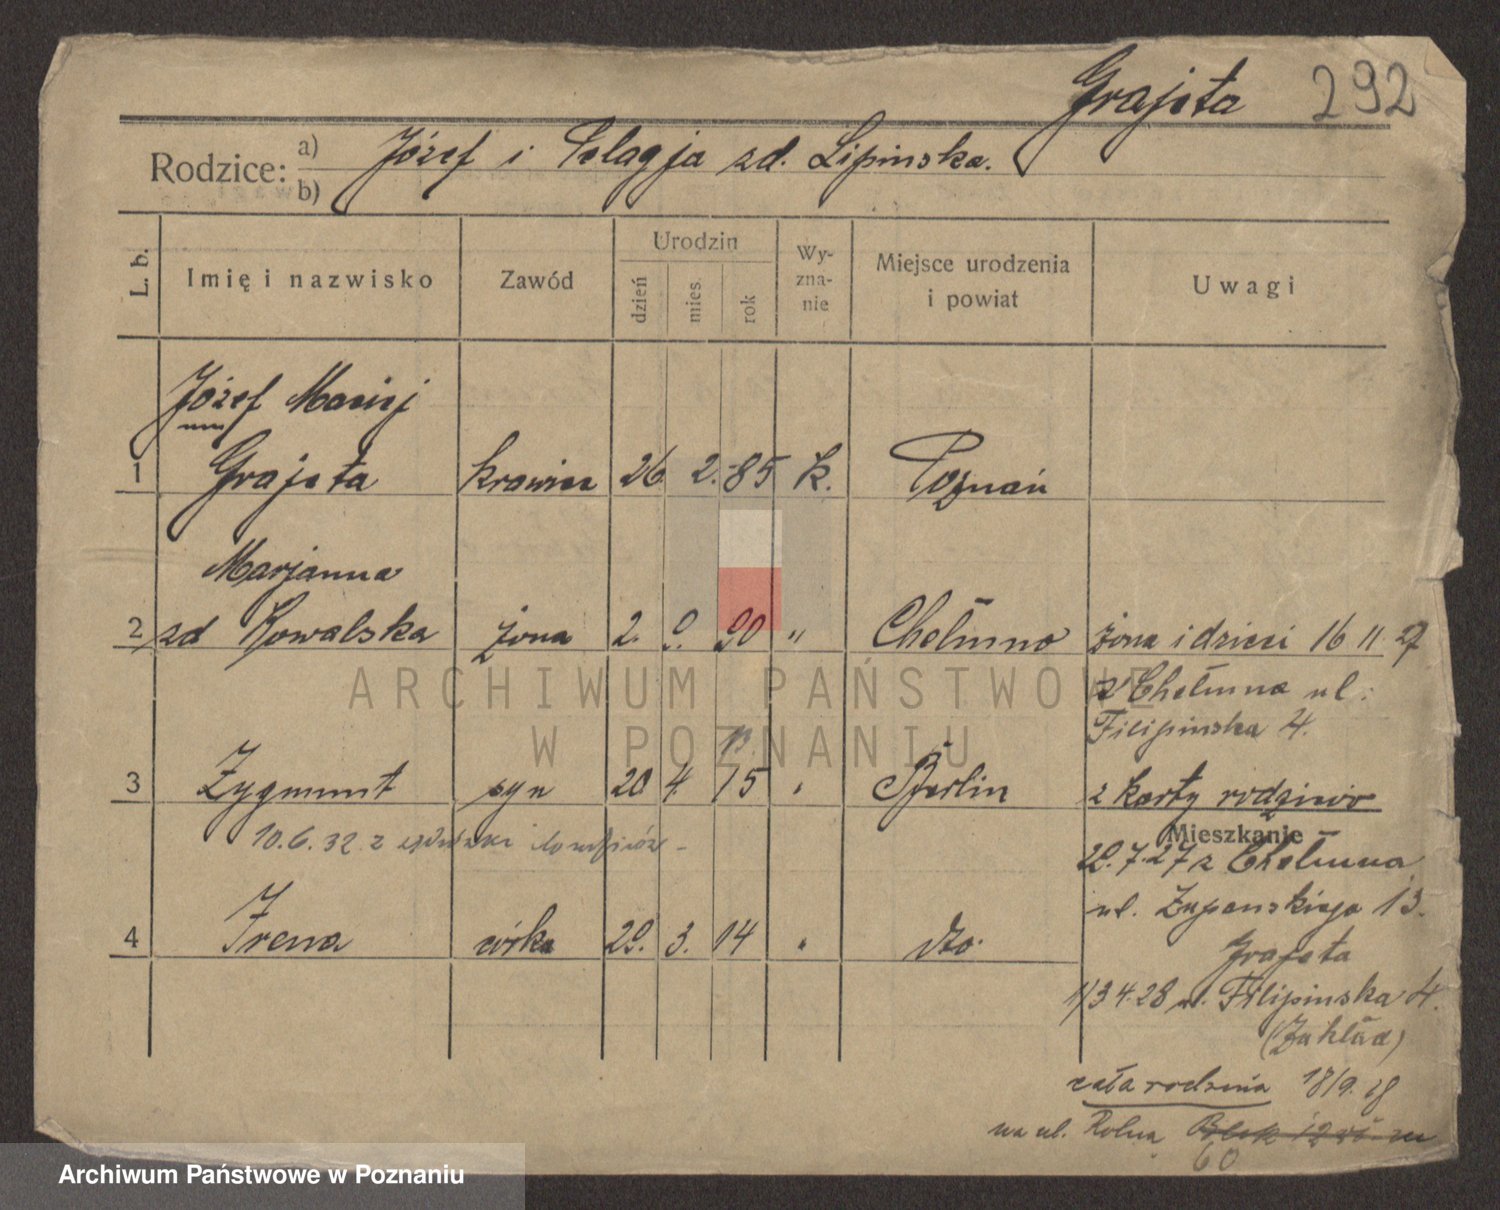 Grajeta 292
Rodzice: a) Józef i Pelagja zd. Lipinska.
b)
L. b. Imię i nazwisko Zawód Urodzin dzień mies. rok Wy-zna-nie Miejsce urodzenia i powiat Uwagi
Józef Maciej
1 Grajeta krawiec 26. 2. 85 k. Poznań
Marjanna
2 zd Kowalska żona 2. 9. 90 " Chełmno żona i dzieci 16 11 27
z Chełmna ul.
Filipinska 4.
13.
3 Zygmunt syn 20 4. 15 " Berlin z karty rodziców
Mieszkanie
10.6.32 z
29.7.27 z Chełmna
ul. Żupanskiego 13.
4 Irena córka 29. 3. 14 " dto.
Grajeta
1/3 4.28 ul. Filipinska 4.
(Zakład)
cała rodzina 18/9.28
na ul. Rolną Blok 12
60
ARCHIWUM PAŃSTWOWE
W POZNANIU
Archiwum Państwowe w Poznaniu